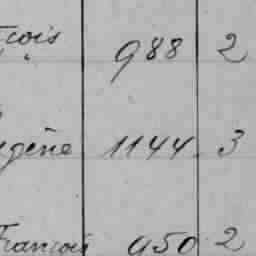 çois 988 2
gène 1144 3
François 950 2